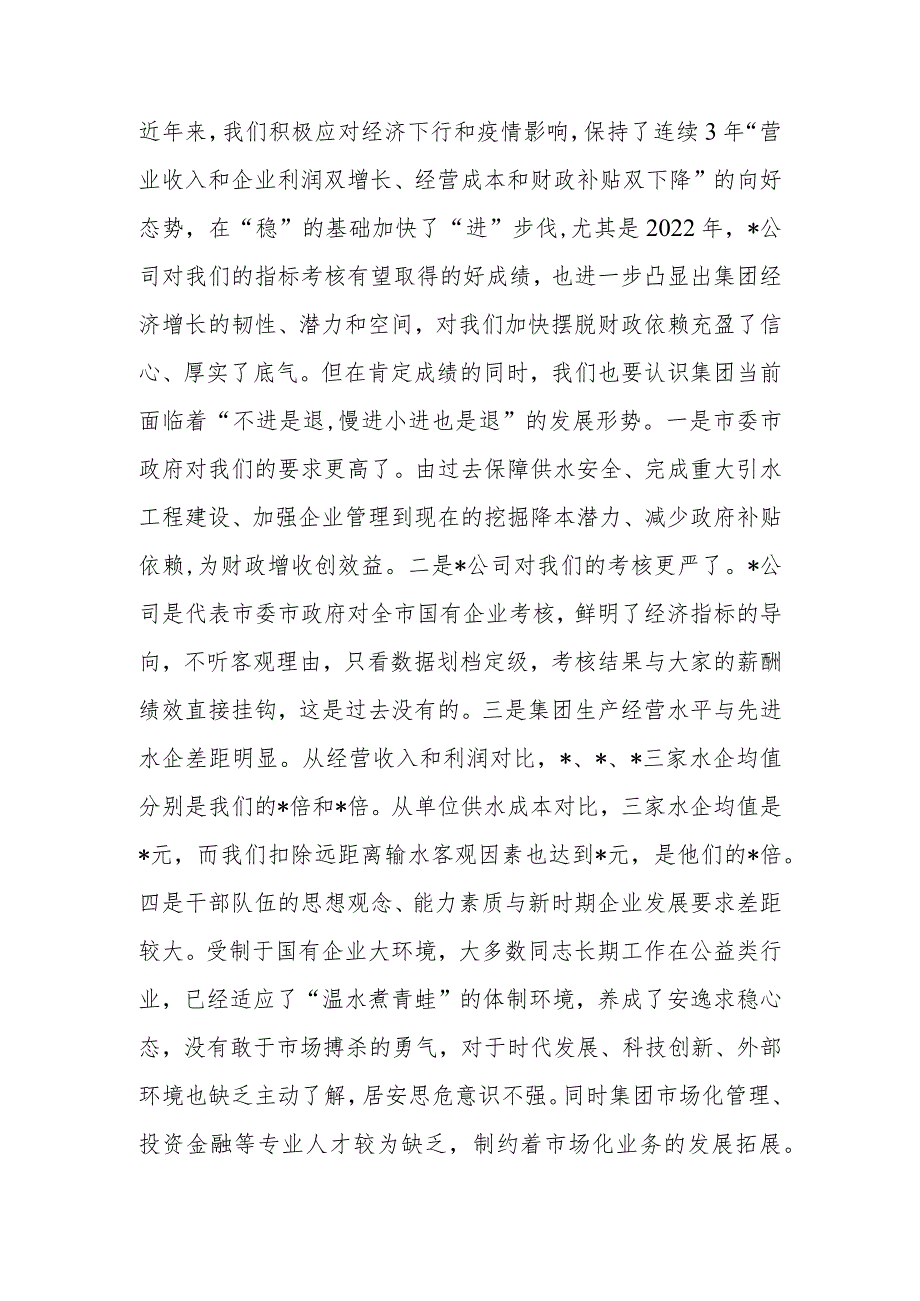 近年来,我们积极应对经济下行和疫情影响,保持了连续 3 年“营
业收入和企业利润双增长、经营成本和财政补贴双下降”的向好
态势，在“稳”的基础加快了“进”步伐,尤其是 2022 年，*公
司对我们的指标考核有望取得的好成绩，也进一步凸显出集团经
济增长的韧性、潜力和空间，对我们加快摆脱财政依赖充盈了信
心、厚实了底气。但在肯定成绩的同时，我们也要认识集团当前
面临着“不进是退,慢进小进也是退”的发展形势。一是市委市
政府对我们的要求更高了。由过去保障供水安全、完成重大引水
工程建设、加强企业管理到现在的挖掘降本潜力、减少政府补贴
依赖,为财政增收创效益。二是*公司对我们的考核更严了。*公
司是代表市委市政府对全市国有企业考核，鲜明了经济指标的导
向，不听客观理由，只看数据划档定级，考核结果与大家的薪酬
绩效直接挂钩，这是过去没有的。三是集团生产经营水平与先进
水企差距明显。从经营收入和利润对比，*、*、*三家水企均值
分别是我们的*倍和*倍。从单位供水成本对比，三家水企均值是
*元，而我们扣除远距离输水客观因素也达到*元，是他们的*倍。
四是干部队伍的思想观念、能力素质与新时期企业发展要求差距
较大。受制于国有企业大环境，大多数同志长期工作在公益类行
业，已经适应了“温水煮青蛙”的体制环境，养成了安逸求稳心
态，没有敢于市场搏杀的勇气，对于时代发展、科技创新、外部
环境也缺乏主动了解,居安思危意识不强。同时集团市场化管理、
投资金融等专业人才较为缺乏，制约着市场化业务的发展拓展。